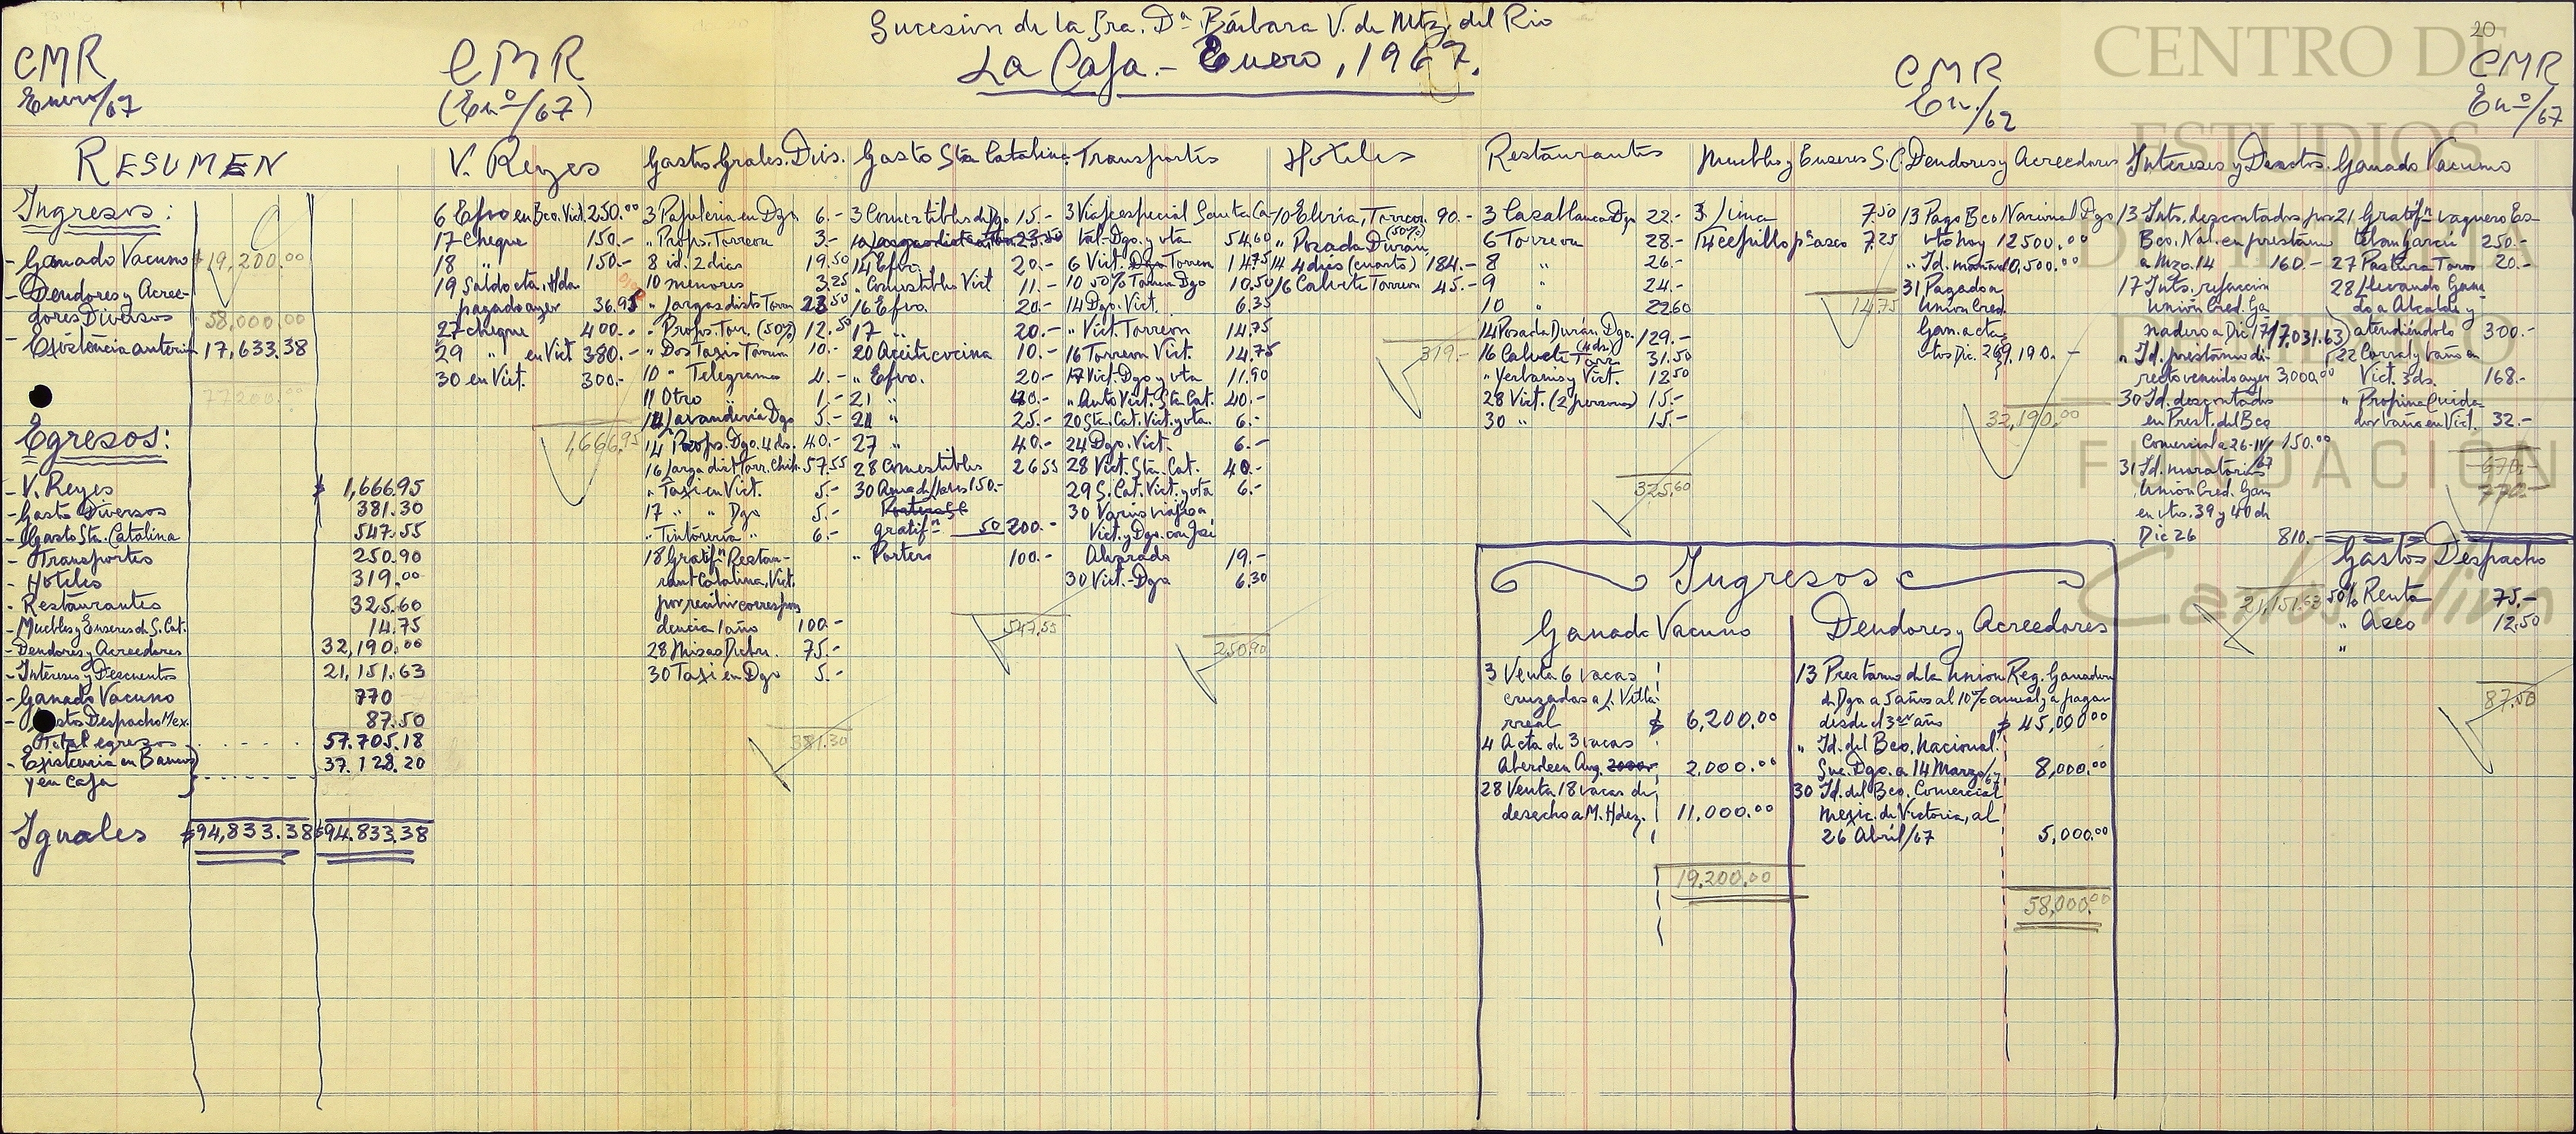 Sucesión de la Sra. Dª Bárbara V. de Mtz. del Rio
La Caja.- Enero, 1967.
20
CMR
Enero/67
CMR
(Enº/67)
CMR
En./62
CMR
Enº/67
CENTRO DE
ESTUDIOS
DE HISTORIA
DE MÉXICO
FUNDACIÓN
Carlos Slim
RESUMEN
Ingresos:
- Ganado Vacuno $19,200.00
- Deudores y Acree-
dores Diversos 58,000.00
- Existencia anterior 17,633.38
77200.00
Egresos:
- V. Reyes $ 1,666.95
- Gasto Diversos 381.30
- Gasto Sta. Catalina 547.55
- Transportes 250.90
- Hoteles 319.00
- Restaurantes 325.60
- Muebles y Enseres de S. Cat. 14.75
- Deudores y Acreedores 32,190.00
- Intereses y Descuentos 21,151.63
- Ganado Vacuno 770
- Gastos Despacho Mex. 87.50
Total egresos 57.705.18
- Existencia en Bancos 37.128.20
y en Caja
Iguales $94,833.38 $94.833.38
V. Reyes
6 Efvo en Bco. Vict. 250.00
17 Cheque 150.-
18 " 150.-
19 Saldo cta. Hda.
pagado ayer 36.95
27 cheque 400.-
29 " en Vict 380.-
30 en Vict. 300.-
1,666.95
Gastos Grales. Divs.
3 Papeleria en Dgo 6.-
" Props. Torreon 3.-
8 id. 2 dias 19.50
10 menores 3.25
" Largas dists Torrn 23.50
" Props. Torr. (50%) 12.50
" Dos Taxis Torreon 10.-
10 " Telegrama 4.-
11 Otro " 1.-
14 Lavanderia Dgo 5.-
14 Props. Dgo. 4 ds. 40.-
16 Larga dist Torr. Chih. 57.55
" Taxi en Vict. 5.-
17 " " Dgo 5.-
" Tintorería " 6.-
18 Gratifn Restau-
rant Catalina, Vict.
por recibir correspon
dencia 1 año 100.-
28 Misas Dicbre. 75.-
30 Taxi en Dgo 5.-
381.30
Gasto Sta Catalina
3 Comestibles de Dgo 15.-
14 Efvo. 20.-
" Comestibles Vict 11.-
16 Efvo. 20.-
17 " 20.-
20 Aceite cocina 10.-
" Efvo. 20.-
21 " 40.-
21 " 25.-
27 " 40.-
28 Comestibles 26.55
150.-
gratifn 50 200.-
" Portero 100.-
547.55
Transportes
3 Viaje especial Santa Ca-
tal.-Dgo. y vta 54.60
6 Vict. Dgo Torreon 14.75
10 50% Torreon Dgo 10.50
14 Dgo. Vict. 6.35
" Vict. Torreon 14.75
16 Torreon Vict. 14.75
17 Vict-Dgo y vta 11.90
" Auto Vict. Sta Cat. 40.-
20 Sta. Cat. Vict. y vta. 6.-
24 Dgo. Vict. 6.-
28 Vict. Sta. Cat. 40.-
29 S. Cat. Vict. y vta 6.-
30 Varios viajes a
Vict. y Dgo. con José
Alvarado 19.-
30 Vict.-Dgo 6.30
250.90
Hoteles
10 Elvira, Torreon 90.-
(50%)
" Posada Durán,
14 4 dias (cuarto) 184.-
16 Calvete Torreon 45.-
319.-
Restaurantes
3 Casablanca Dgo 22.-
6 Torreon 28.-
8 " 26.-
9 " 24.-
10 " 22.60
14 Posada Durán Dgo. 129.-
(4 ds.)
16 Calvete Torr. 31.50
" Yerbanis y Vict. 12.50
28 Vict. (2 personas) 15.-
30 " 15.-
325.60
Muebles y Enseres S. C.
3 Lima 7.50
14 Cepillo pª aseo 7.25
14.75
Deudores y Acreedores
13 Pago Bco Nacional Dgo
vto hoy 12500.00
" Id. mañana 10,500.00
31 Pagado a
Unión Cred.
Gan. a cta
vtos Dic. 26 9,190.-
32,190.00
Intereses y Dsctos.
13 Ints. descontados por
Bco. Nal. en préstamo
a Mzo. 14 160.-
17 Ints. refaccion
Unión Cred. Ga
nadero a Dic 17 17,031.63
" Id. préstamo di-
recto vencido ayer 3,000.00
30 Id. descontados
en Prest. del Bco
Comercial a 26-IV/67 150.00
31 Id. moratorios
Unión Cred. Gan
en vtos. 39 y 40 de
Dic 26 810.-
21,151.63
Ganado Vacuno
21 Gratifn vaquero Es-
teban García 250.-
27 Pastura Toros 20.-
28 llevando Gana
do a Alcalde y
atendiéndolo 300.-
22 Corral y baño en
Vict. 3 ds. 168.-
" Propina Cuida-
dor baño en Vict. 32.-
670.-
770.-
Gastos Despacho
50% Renta 75.-
" Aseo 12.50
"
87.50
Ingresos
Ganado Vacuno
3 Venta 6 vacas
cruzadas a J. Villa-
rreal $ 6,200.00
4 A cta de 3 vacas
Aberdeen Ang. 2000.- 2.000.00
28 Venta 18 vacas de
desecho a M. Hdez. 11.000.00
19.200.00
Deudores y Acreedores
13 Prestamo de la Union Reg. Ganadera
de Dgo a 5 años al 10% anual, a pagar
desde el 3er año $ 45,000.00
" Id. del Bco. Nacional.
Suc. Dgo. a 14 Marzo/67 8,000.00
30 Id. del Bco. Comercial
Mexic. de Victoria, al
26 Abril/67 5,000.00
58,000.00